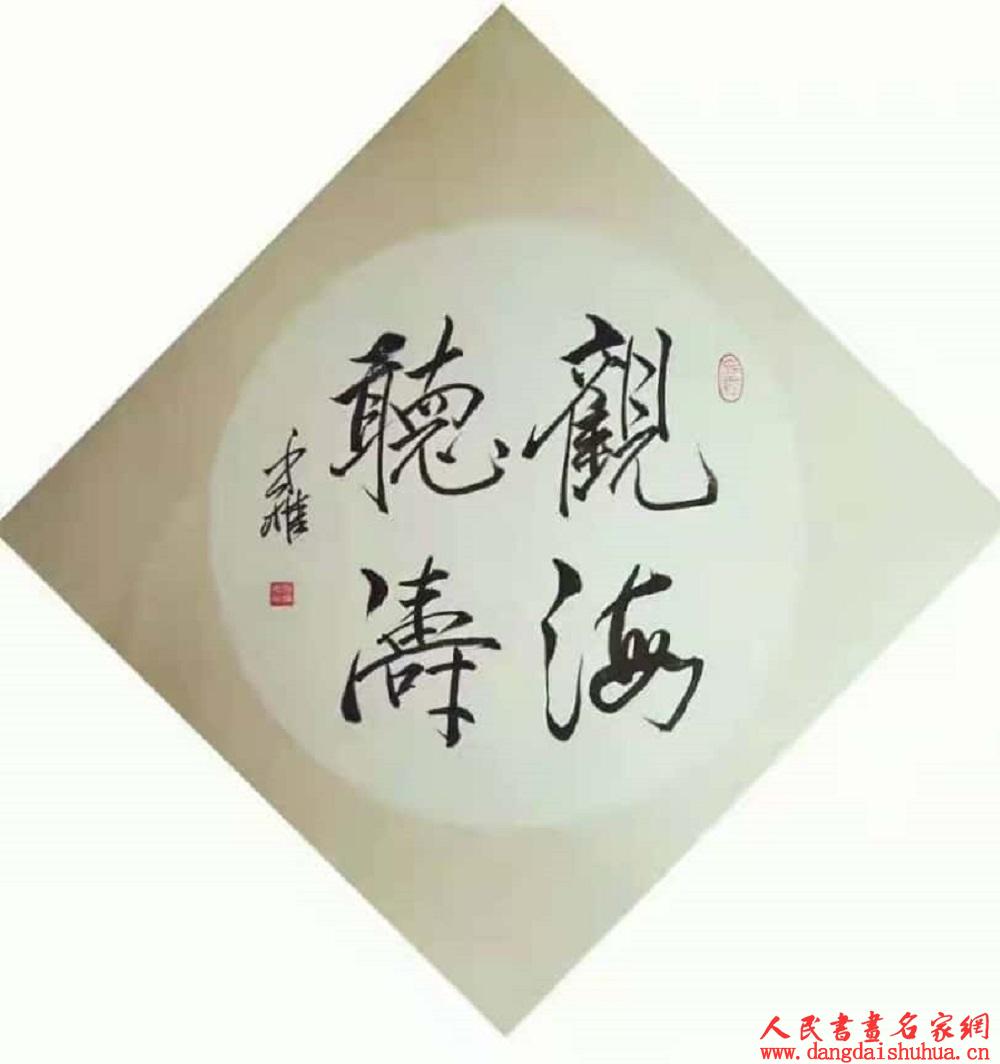 觀海
聽濤
人民書畫名家網
www.dangdaishuhua.cn